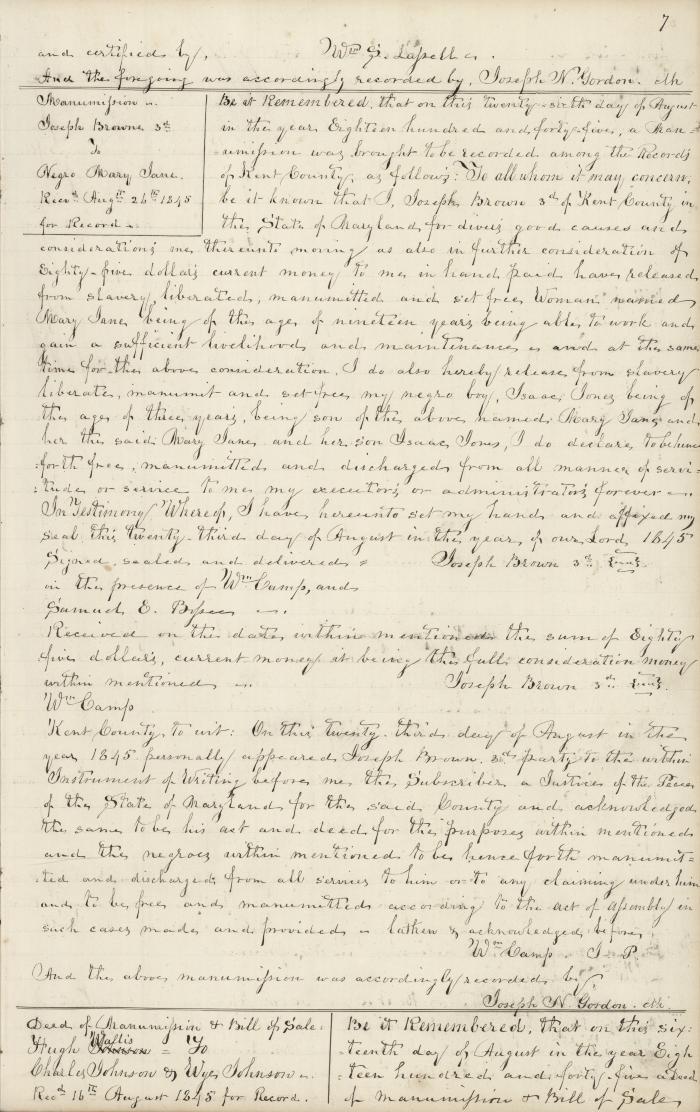 7
and certified by, Wm S. Lassell .
And the foregoing was accordingly recorded by, Joseph N. Gordon. clk
Manumission
Joseph Browne 3d
To
Negro Mary Jane.
Recd Augt 26th 1845
for Record
Be it Remembered, that on this twenty-sixth day of August
in the year Eighteen hundred and forty-five, a Man=
umission was brought to be recorded among the Records
of Kent County, as follows: To all whom it may concern,
be it known that I, Joseph Brown 3d of Kent County in
the State of Maryland for divers good causes and
considerations me thereunto moving as also in further consideration of
Eighty-five dollars current money to me in hand paid have released
from slavery, liberated, manumitted and set free Woman named
Mary Jane being of the age of nineteen years being able to work and
gain a sufficient livelihood and maintenance and at the same
time for the above consideration, I do also hereby release from slavery
liberate, manumit and set free my negro boy, Isaac Jones being of
the age of three years, being son of the above named Mary Jane and
her the said Mary Jane and her son Isaac Jones, I do declare to be hence
=forth free, manumitted and discharged from all manner of servi=
=tude or service to me my executors or administrators forever
In Testimony Whereof, I have hereunto set my hand and affixed my
seal, this twenty-third day of August in the year of our Lord, 1845
Signed, sealed and delivered Joseph Brown 3d {seal}
in the presence of Wm Camp, and
Samuel E.
Received on the date within mentioned the sum of Eighty
five dollars, current money it being the full consideration money
within mentioned Joseph Brown 3d {seal}.
Wm Camp
Kent County, to wit: On this twenty-third day of August in the
year 1845 personally appeared Joseph Brown. 3d party to the within
Instrument of Writing before me the Subscriber a Justice of the Peace
of the State of Maryland for the said County and acknowledged
the same to be his act and deed for the purposes within mentioned
and the negroes within mentioned to be hence forth manumit=
=ted and discharged from all service to him or to any claiming under him
and to be free and manumitted according to the act of assembly in
such cases made and provided taken & acknowledged before,
Wm Camp J. P.
And the above manumission was accordingly recorded by,
Joseph N. Gordon. clk
Deed of Manumission & Bill of Sale.
Wallis
Hugh Johnson = To
Charles Johnson & Wye Johnson
Recd 16th August 1845 for Record.
Be it Remembered, that on this six=
=teenth day of August in the year Eigh
=teen hundred and forty-five a deed
of manumission & Bill of Sale